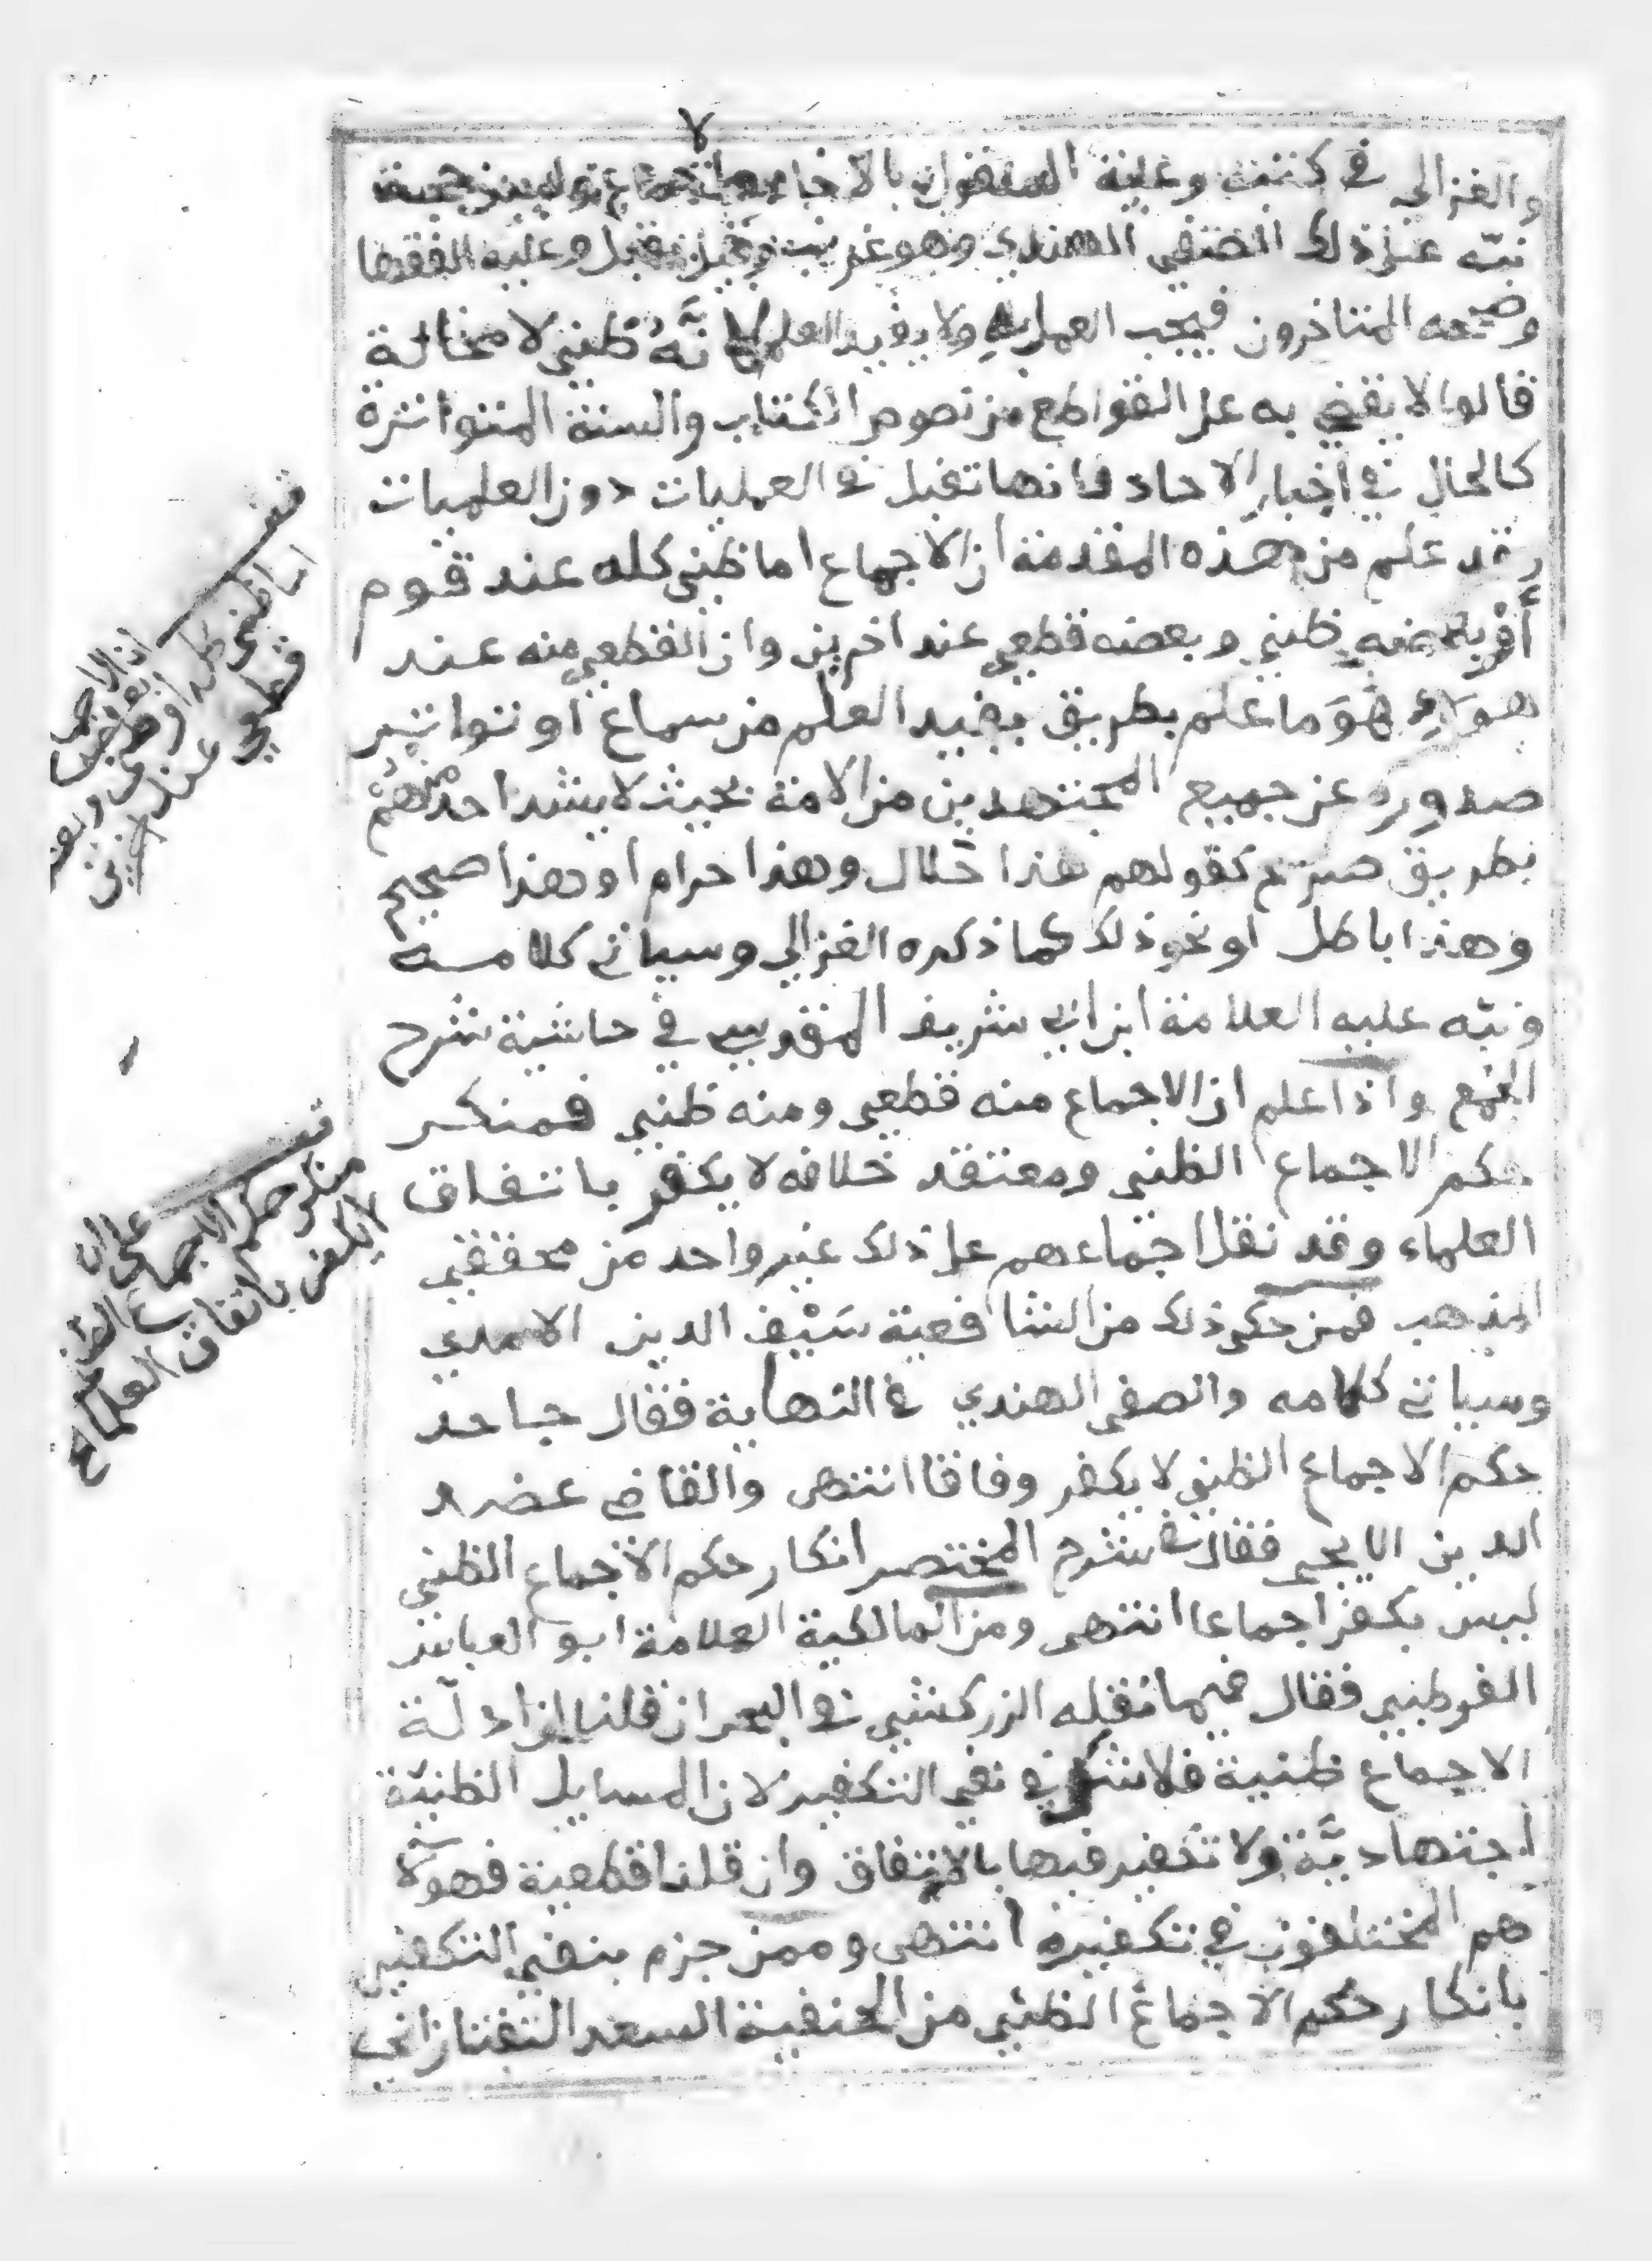 ٧
والغزالي في كتبه وعليه المنقول بالاحاد ليس حجة
نبّه على ذلك الصفي الهندي وهو غريب وقيل يقبل وعليه الفقها
وصححه المتاخرون فيجب العمل به ولا يفيد العلم لانَّهُ ظني لا محالة
قالوا لا يقضي به على القواطع من نصوص الكتاب والسنة المتواترة
كالحال في أخبار الاحاد فانها تقبل في العمليات دون العلميات
وقد علم من هذه المقدمة ان الاجماع اما ظني كله عند قوم
أوْ بعضه ظني وبعضه قطعي عند اخرين وان القطعي منه عند
هولاءِ هُوَ ما علم بطريق يفيد العلم من سماع أو تواتر
صدوره عن جميع المجتهدين من الامة بحيث لا يشد احد منهُمْ
بطريق صريح كقولهم هذا حَلال وهذا حرام او وهذا صحيح
وهذا باطل او نحو ذلك كما ذكره الغزالي وسياتي كلامه
ونبّه عليه العلامة ابن ابي شريف المقدسي في حاشية شرح
الجمع واذا علم ان الاجماع منه قطعي ومنه ظني فمنكر
حكم الاجماع الظني ومعتقد خلافه لا يكفر باتفاق
العلماء وقد نقل اجماعهم على ذلك غير واحد من محققي
المذهب فمن حكى ذلك من الشافعية سَيْف الدين الامدي
وسياتي كلامه والصفي الهندي في النهاية فقال جاحد
حكم الاجماع الظني لا يكفر وفاقا انتهى والقاضي عضد
الدين الايجي فقال في شرح المختصر انكار حكم الاجماع الظني
ليس بكفر اجماعا انتهى ومن المالكية العلامة ابو العباس
القرطبي فقال فيما نقله الزركشي في البحر ان قلنا ان ادلّة
الاجماع ظنية فلا شك في نفي التكفير لان المسايل الظنيّة
اجتهاديَّة ولا تكفير فيها بالاتفاق وان قلنا قطعية فهولآ
هم المختلفون في تكفيره انتهى وممن جزم بنفي التكفير
بانكار حكم الاجماع الظني من الحنفية السعد التفتازاني
قف
اما ظني كله او
قطعي عند اخرين
قف على ان
منكر حكم الاجماع الظني
لا يكفر باتفاق العلماء